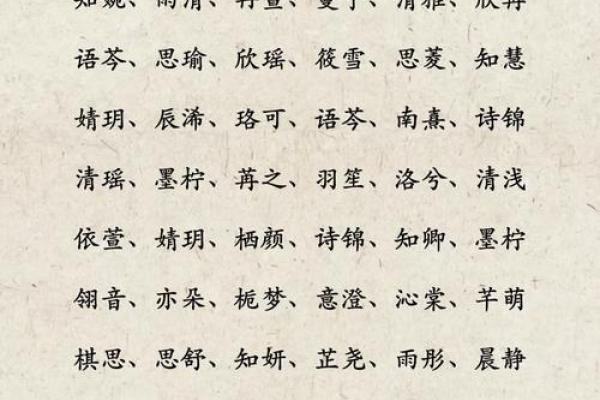 知婉、雨清、苒萱、曼宁、清雅、欣苒
语芩、思瑜、欣瑶、筱雪、思菱、知慧
婧玥、辰浠、珞可、语芩、南熹、诗锦
清瑶、墨柠、苒之、羽笙、洛兮、清浅
依萱、婧玥、栖颜、诗锦、知卿、墨柠
翎音、亦朵、栀梦、意澄、沁棠、芊萌
棋思、思舒、知妍、芷尧、雨彤、晨静